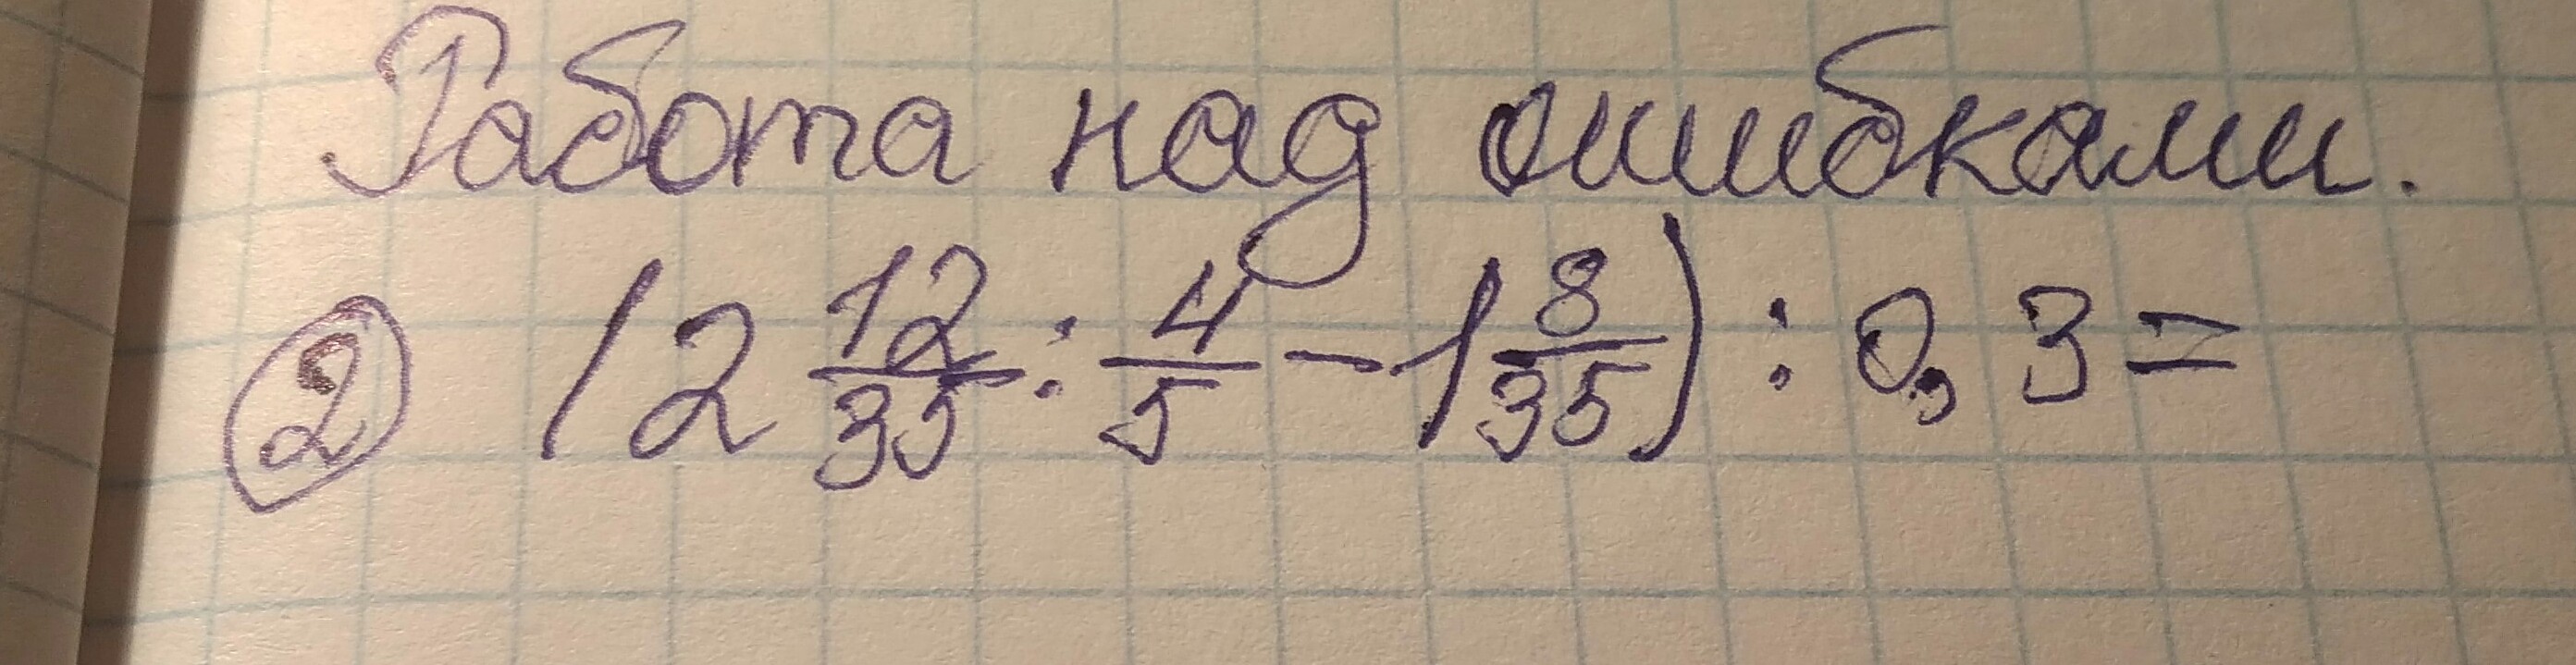 Работа над ошибками.
② (2 12/35 : 4/5 - 1 8/35) : 0,3 =